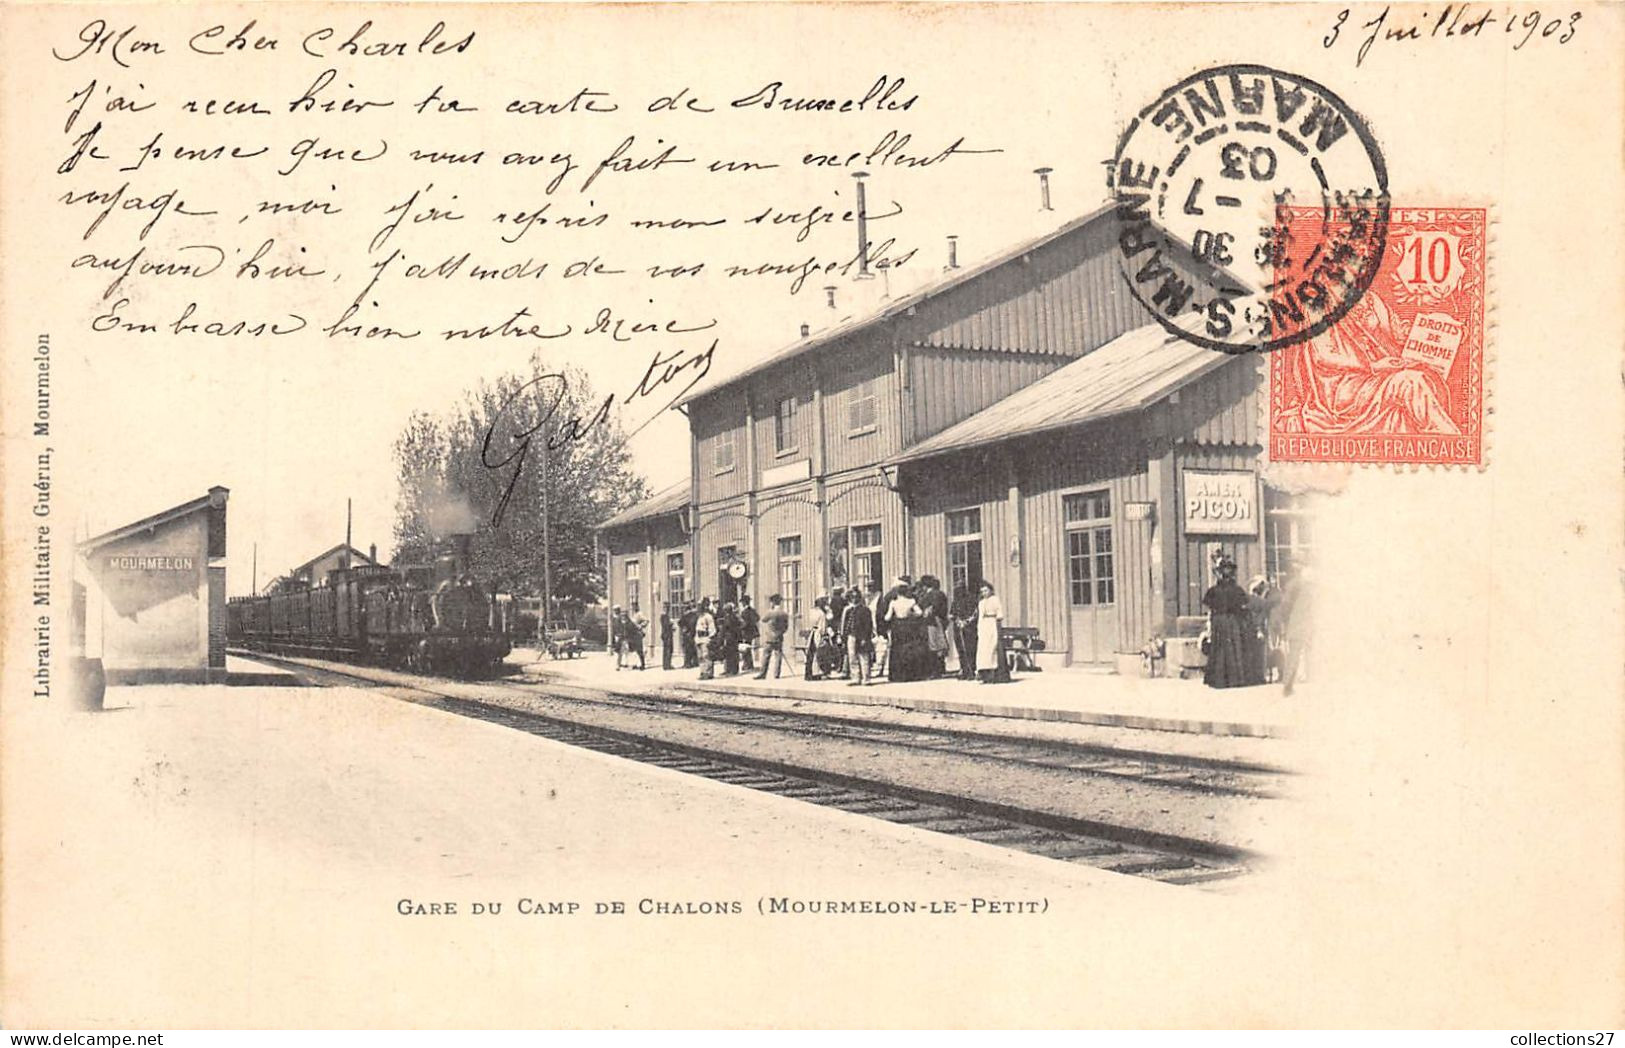 3 Juillet 1903
Mon Cher Charles
J'ai recu hier ta carte de Bruxelles
Je pense que vous avez fait un excellent
voyage, moi j'ai repris mon service
aujourd'hui, J'attends de vos nouvelles
Embrasse bien notre Mère
Gaston
CHALONS-S-MARNE
MARNE
30
1 - 7
03
POSTES
10
DROITS
DE
L'HOMME
REPVBLIQVE FRANÇAISE
MOURMELON
AMER
PICON
Librairie Militaire Guérin, Mourmelon
GARE DU CAMP DE CHALONS (MOURMELON-LE-PETIT)
collections27